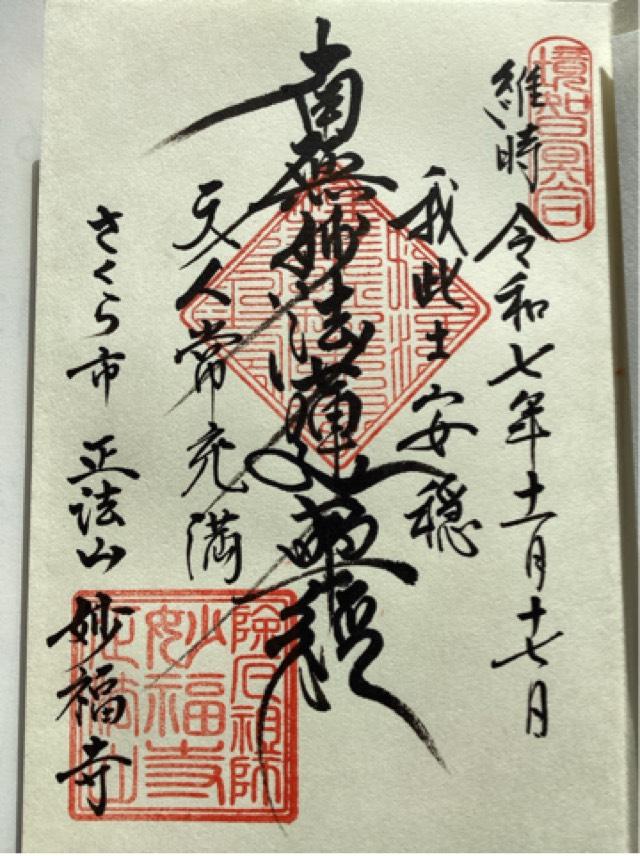 境智冥合
維時 令和七年十一月十七日
我此土安穏
南無妙法蓮華経
天人常充満
さくら市 正法山 妙福寺
祖師
妙福寺